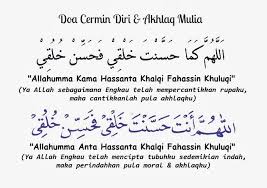 Doa Cermin Diri & Akhlaq Mulia
اَللّٰهُمَّ كَمَا حَسَّنْتَ خَلْقِيْ فَحَسِّنْ خُلُقِيْ
"Allahumma Kama Hassanta Khalqi Fahassin Khuluqi"
(Ya Allah sebagaimana Engkau telah mempercantikkan rupaku,
maka cantikkanlah pula akhlaqku)
اَللّٰهُمَّ أَنْتَ حَسَّنْتَ خَلْقِيْ فَحَسِّنْ خُلُقِيْ
"Allahumma Anta Hassanta Khalqi Fahassin Khuluqi"
(Ya Allah Engkau telah mencipta tubuhku sedemikian indah,
maka perindahkan pula moral & akhlaqku)